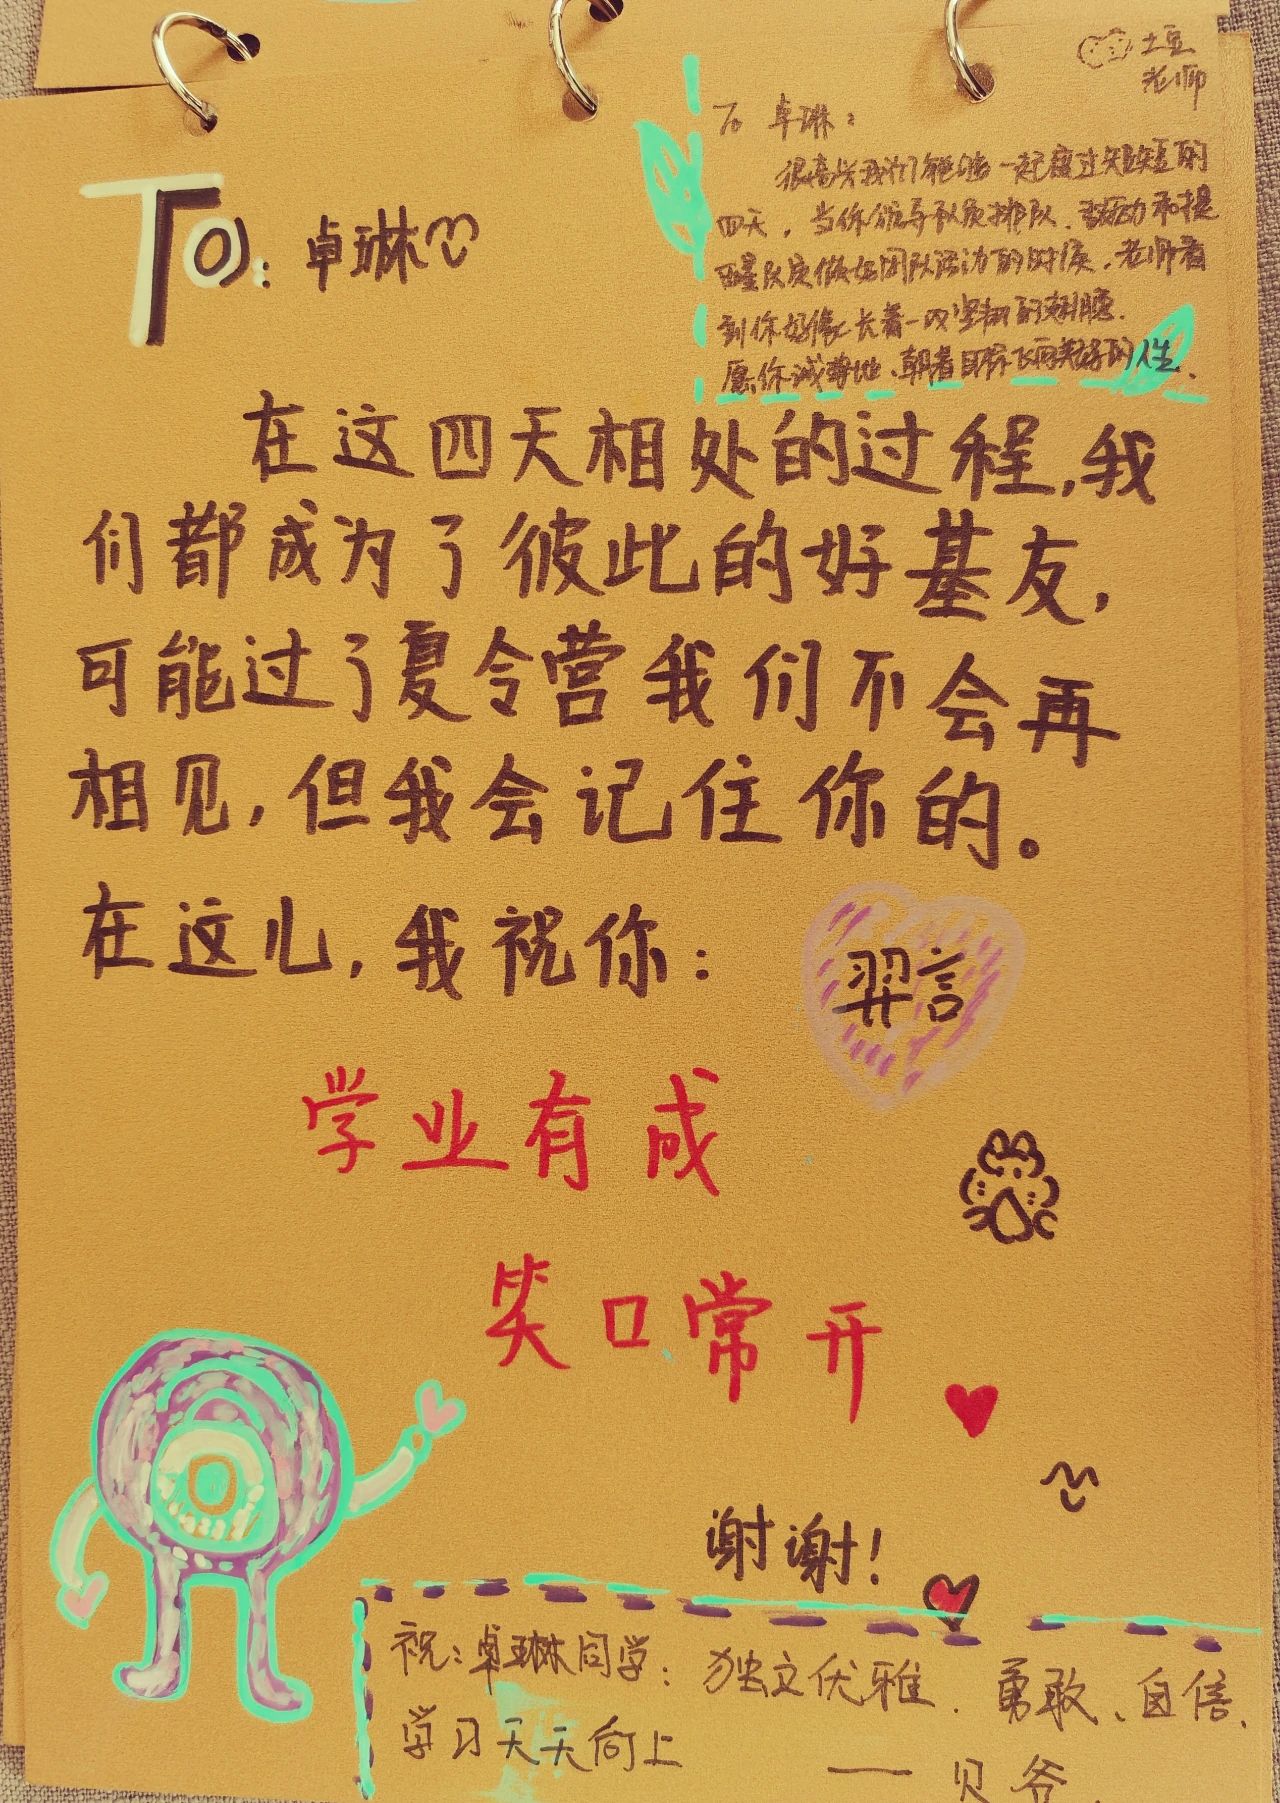 土豆
老师
To 卓琳:
很高兴我们能够一起度过短短的
四天，当你领导队员排队、鼓动和提
醒队员做好团队活动的时候，老师看
到你好像长着一双坚韧的翅膀.
愿你诚尊地、朝着目标飞向美好的人生.
To: 卓琳
在这四天相处的过程,我
们都成为了彼此的好基友,
可能过了夏令营我们不会再
相见,但我会记住你的。
在这儿,我祝你:
羿言
学业有成
笑口常开
谢谢!
祝:卓琳同学: 独立优雅、勇敢、自信、
学习天天向上
——贝爷.